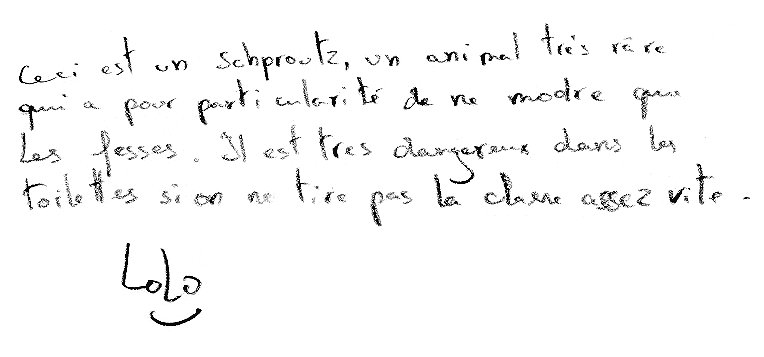 Ceci est un schproutz, un animal très rare
qui a pour particularité de ne modre que
les fesses. Il est tres dangereux dans les
toilettes si on ne tire pas la chasse assez vite.
LoLo